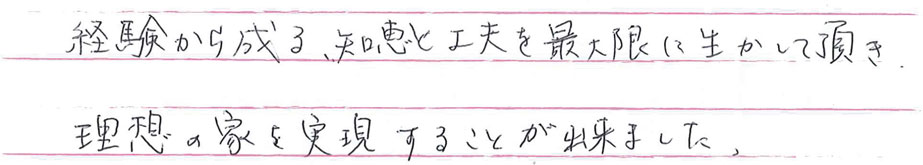 経験から成る、知恵と工夫を最大限に生かして頂き、
理想の家を実現することが出来ました。